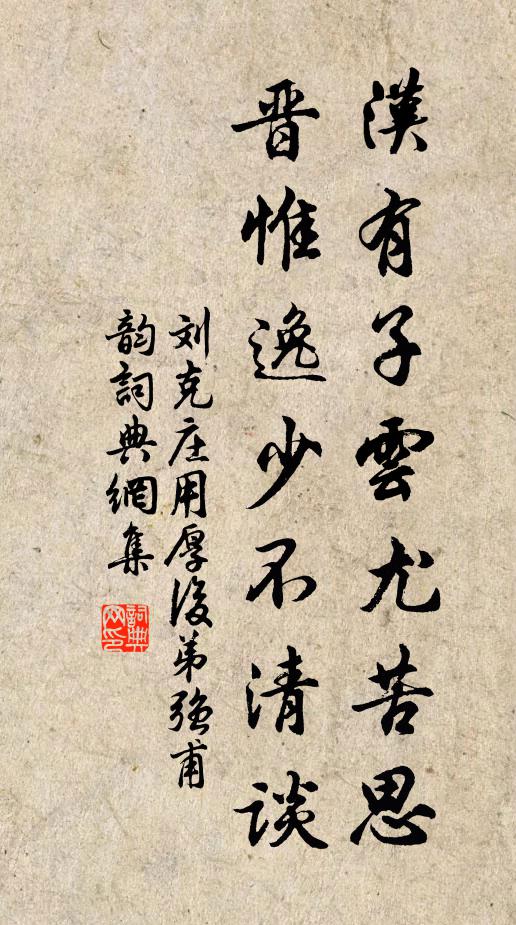 漢有子雲尤苦思
晋惟逸少不清談
刘克庄用厚後弟強甫
韵詞典網集
詞典
网印